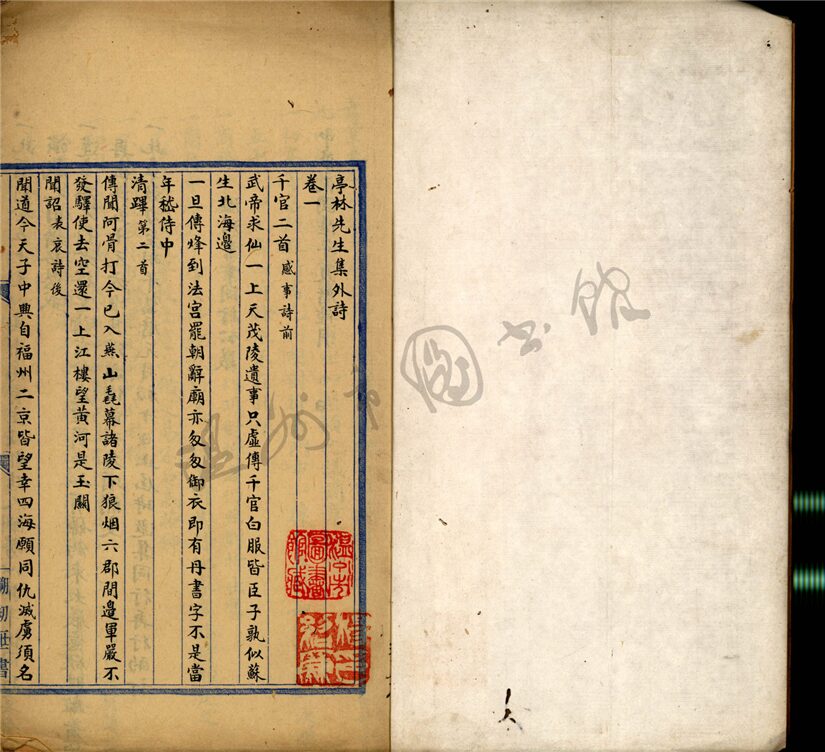 亭林先生集外詩
卷一
千官二首 感事詩前
武帝求仙一上天茂陵遺事只虛傳千官白服皆臣子孰似蘇
生北海邊
一旦傳烽到法宮罷朝辭廟亦匆匆御衣即有丹書字不是當
年嵇侍中
清蹕 第二首
傳聞阿骨打今已入燕山毳幕諸陵下狼烟六郡間邊軍嚴不
發驛使去空還一上江樓望黃河是玉關
聞詔 表哀詩後
聞道今天子中興自福州二京皆望幸四海願同仇滅虜須名
溫州市圖書館